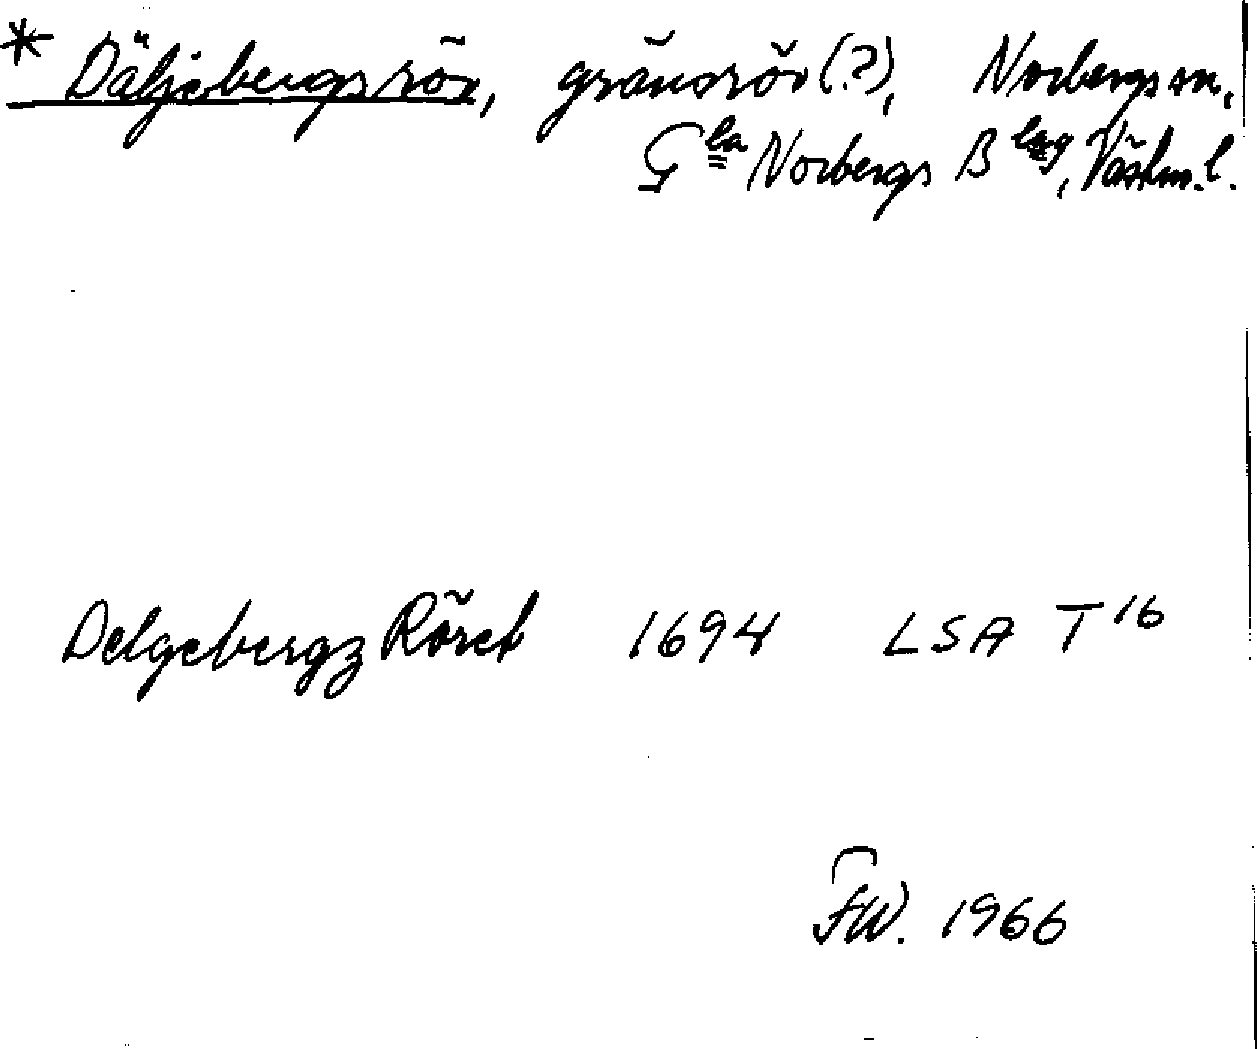 * Däljebergsrör, gränsrör(?), Norbergs sn,
Gla Norbergs Blag, Västm. l.
Delgebergz Röret 1694 LSA T16
FW. 1966